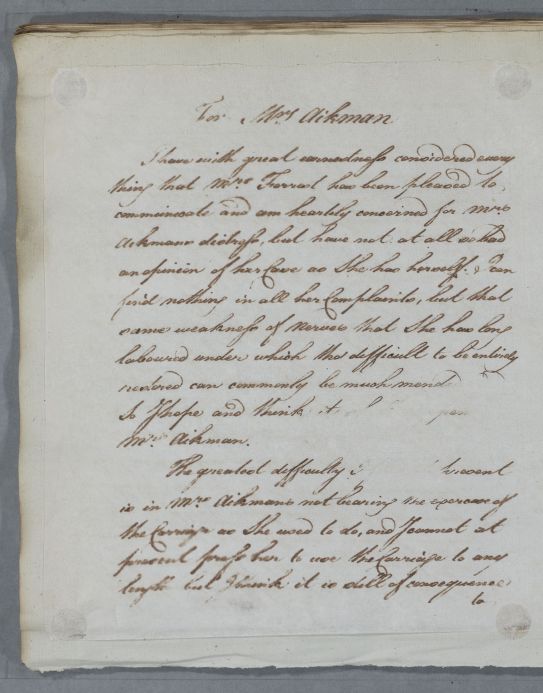 For Mrs Aikman
I have with great earnestness considered every
thing that Mrs Ferred has been pleased to
communicate and am heartily concerned for Mrs
Aikmans distress, but have not at all so bad
an opinion of her Case as She has herself. I can
find nothing in all her Complaints, but that
same weakness of nerves that She has long
laboured under which tho difficult to be entirely
removed can commonly be much
So I hope and think it
Mrs Aikman.
The greatest difficulty present
is in Mrs Aikmans not bearing the exercise of
the Carriage as She used to do, and I cannot at
present press her to use the Carriage to any
length but I think it is still of consequence
to